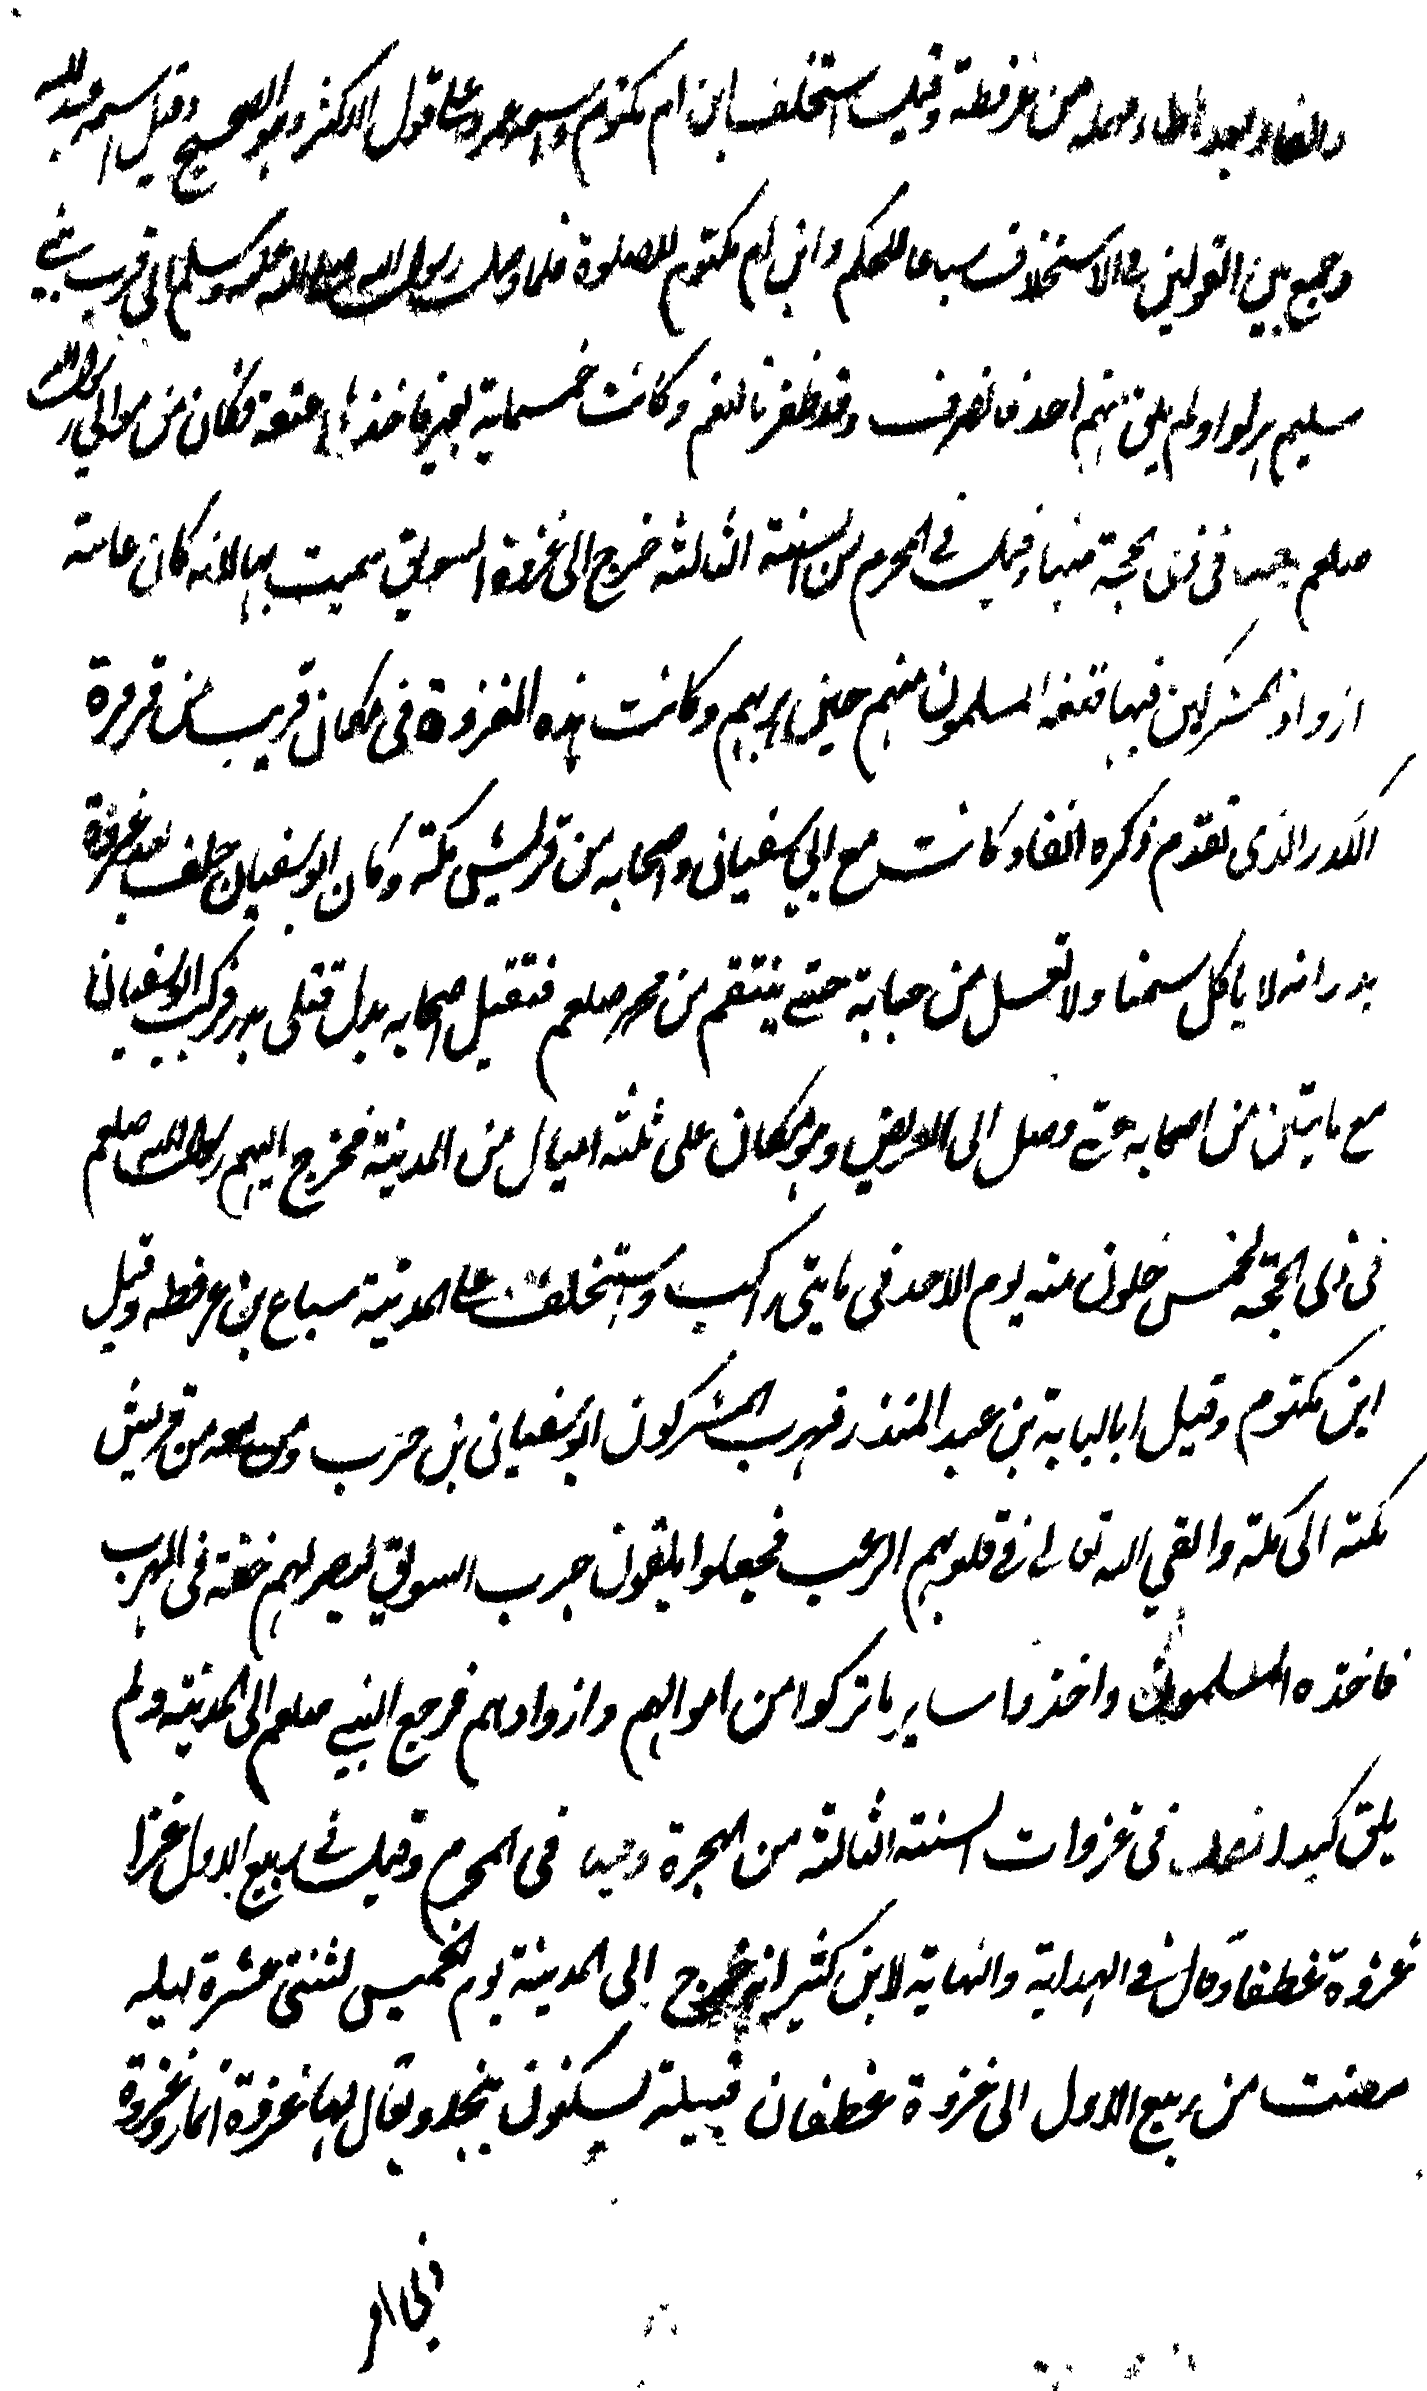 والفاء وبعدها طاء مهملة من عرفطة وقيل استخلف ابن ام مكتوم واسمه عمرو على قول الاكثر وهو الصحيح وقيل اسمه عبد الله
وجمع بين القولين على الاستخلاف سباعا للحكم وابن ام مكتوم للصلوة فلما وصل رسول الله صلى الله عليه وسلم الى قرب بني
سليم هربوا ولم يلق منهم احد فانصرف وقد ظفر بالنعم وكانت خمسماية بعير فاخذ عتقه فكان من موالي رسول الله
صلعم في ذى الحجة منها وقيل في المحرم من السنة الثالثة خرج الى غزوة السويق سميت بها لانه كان عامة
ازواد المشركين فيها فتغنمه المسلمون منهم حين هربهم وكانت هذه الغزوة في مكان قريب من قرقرة
الكدر الذى تقدم ذكره انفا وكانت مع ابي سفيان واصحابه من قريش مكة وكان ابو سفيان حلف بعد غزوة
بدر انه لا ياكل سمنا ولا تغسل من جنابة حتى ينتقم من محمد صلعم فتقتيل اصحابه بدل قتلى بدر فركب ابو سفيان
مع مايتين من اصحابه حتى وصل الى العريض وهو مكان على ثلثة اميال من المدينة فخرج اليهم رسول الله صلعم
في ذى الحجة لخمس خلون منه يوم الاحد في مايتى راكب واستخلف على المدينة سباع بن عرفطه وقيل
ابن مكتوم وقيل ابا لبابة بن عبد المنذر فهرب المشركون ابو سفيان بن حرب ومن معه من قريش
مكته الى مكة والقي الله تعالى في قلوبهم الرعب فجعلوا يلقون جرب السويق ليصير لهم خفة في الهرب
فاخذه المسلمون واخذوا ساير ما تركوا من اموالهم وازوادهم فرجع النبي صلعم الى المدينة ولم
يلق كيدا فصل في غزوات السنة الثالثة من الهجرة في المحرم وقيل في ربيع الاول غزا
غزوة غطفا وقال في الهداية والنهاية لابن كثير انه خرج الى المدينة يوم الخميس لثنتى عشرة ليله
مضت من ربيع الاول الى غزوة غطفان قبيلة يسكنون بنجد ويقال لها غزوة انمار وغزوة
ذى امر